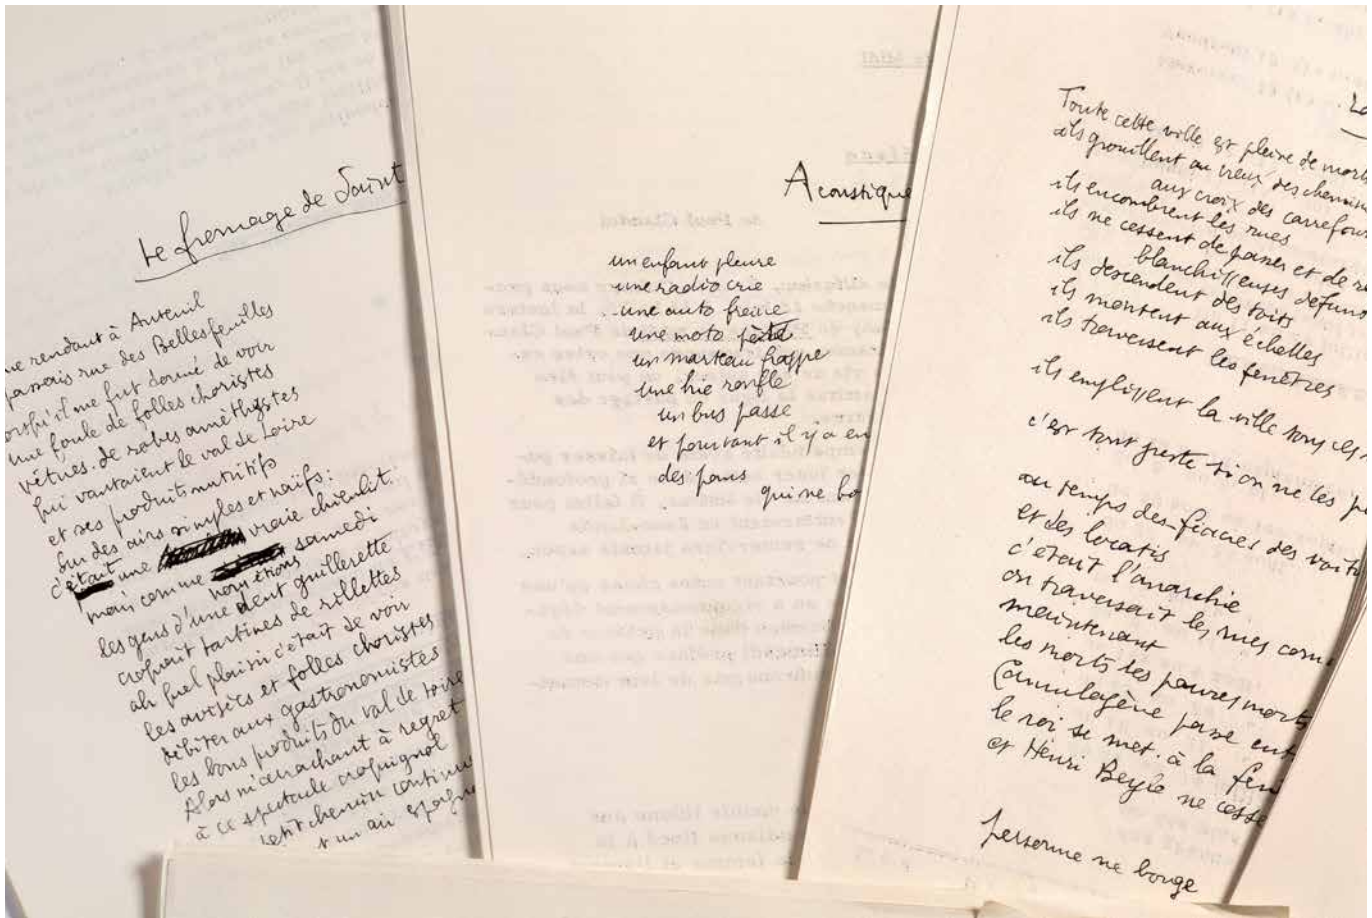 Le fromage de Saint
me rendant à Auteuil
passais rue des Belles feuilles
lorsqu'il me fut donné de voir
une foule de folles choristes
vêtues de robes améthystes
qui vantaient le val de Loire
et ses produits nutritifs
sur des airs simples et naïfs :
c'était une vraie chienlit.
mais comme nous étions samedi
les gens d'une dent guillerette
croquait tartines de rillettes
ah quel plaisir c'était de voir
les avisées et folles choristes
débiter aux gastronomistes
les bons produits du val de Loire
Alors m'arrachant à regret
à ce spectacle croquignol
petit chemin continu
t un air espagn
Acoustique
un enfant pleure
une radio crie
une auto freine
une moto pète
un marteau frappe
une hie ronfle
un bus passe
et pourtant il y a en
des pans
qui ne bo
Toute cette ville est pleine de morts
ils grouillent au creux des chemins
aux croix des carrefour
ils encombrent les rues
ils ne cessent de passer et de re
blanchisseuses défun
ils descendent des toits
ils montent aux échelles
ils traversent les fenêtres
ils emplissent la ville tous ces
c'est tout juste si on ne les
au temps des fiacres des voitu
et des locatis
c'était l'anarchie
on traversait les rues com
maintenant
les morts les pauvres morts
Cannulogène passe ent
le roi se met à la fen
et Henri Beyle ne cesse
personne ne bouge